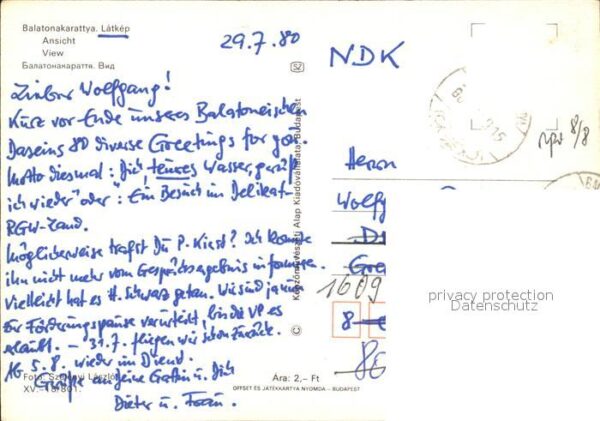 Balatonakarattya. Látkép
Ansicht
View
Балатонакараття. Вид
29.7.80
NDK
Lieber Wolfgang!
Kurz vor Ende unseres Balatoneischen
Daseins 80 diverse Greetings for you!
Motto diesmal: Dich, teures Wasser, grüß
ich wieder" oder: "Ein Besuch im Delikat-
RGW-Land.
Möglicherweise trafst Du P. Kiest? Ich konnte
ihn nicht mehr vom Gesprächsergebnis informieren.
Vielleicht hat es H. Schwarz getan. Wir sind ja
zur Förderungspause verurteilt, bis die VP es
erlaubt. - 31.7. fliegen wir schon zurück.
Ab 5.8. wieder im Dienst.
Grüße an Deine Gattin u. Dich
Dieter u. Fam.
Foto: László
XV.
Ára: 2,- Ft
OFFSET ÉS JÁTÉKKÁRTYA NYOMDA - BUDAPEST
© Képzőművészeti Alap Kiadóvállalata, Budapest
SZ
8/8
Herrn
Wolfg
1609
8
privacy protection
Datenschutz